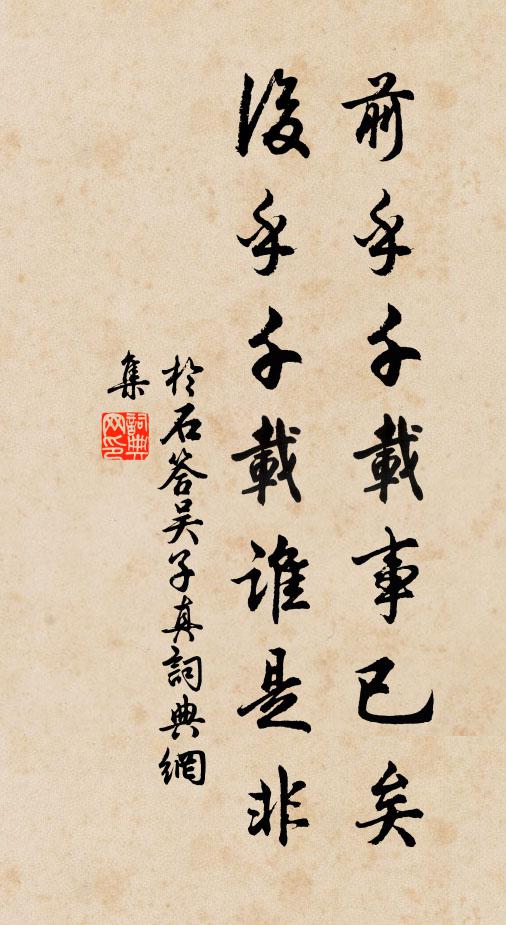 前乎千載事已矣
後乎千載誰是非
於石答吴子真詞典網
集
詞典
网印